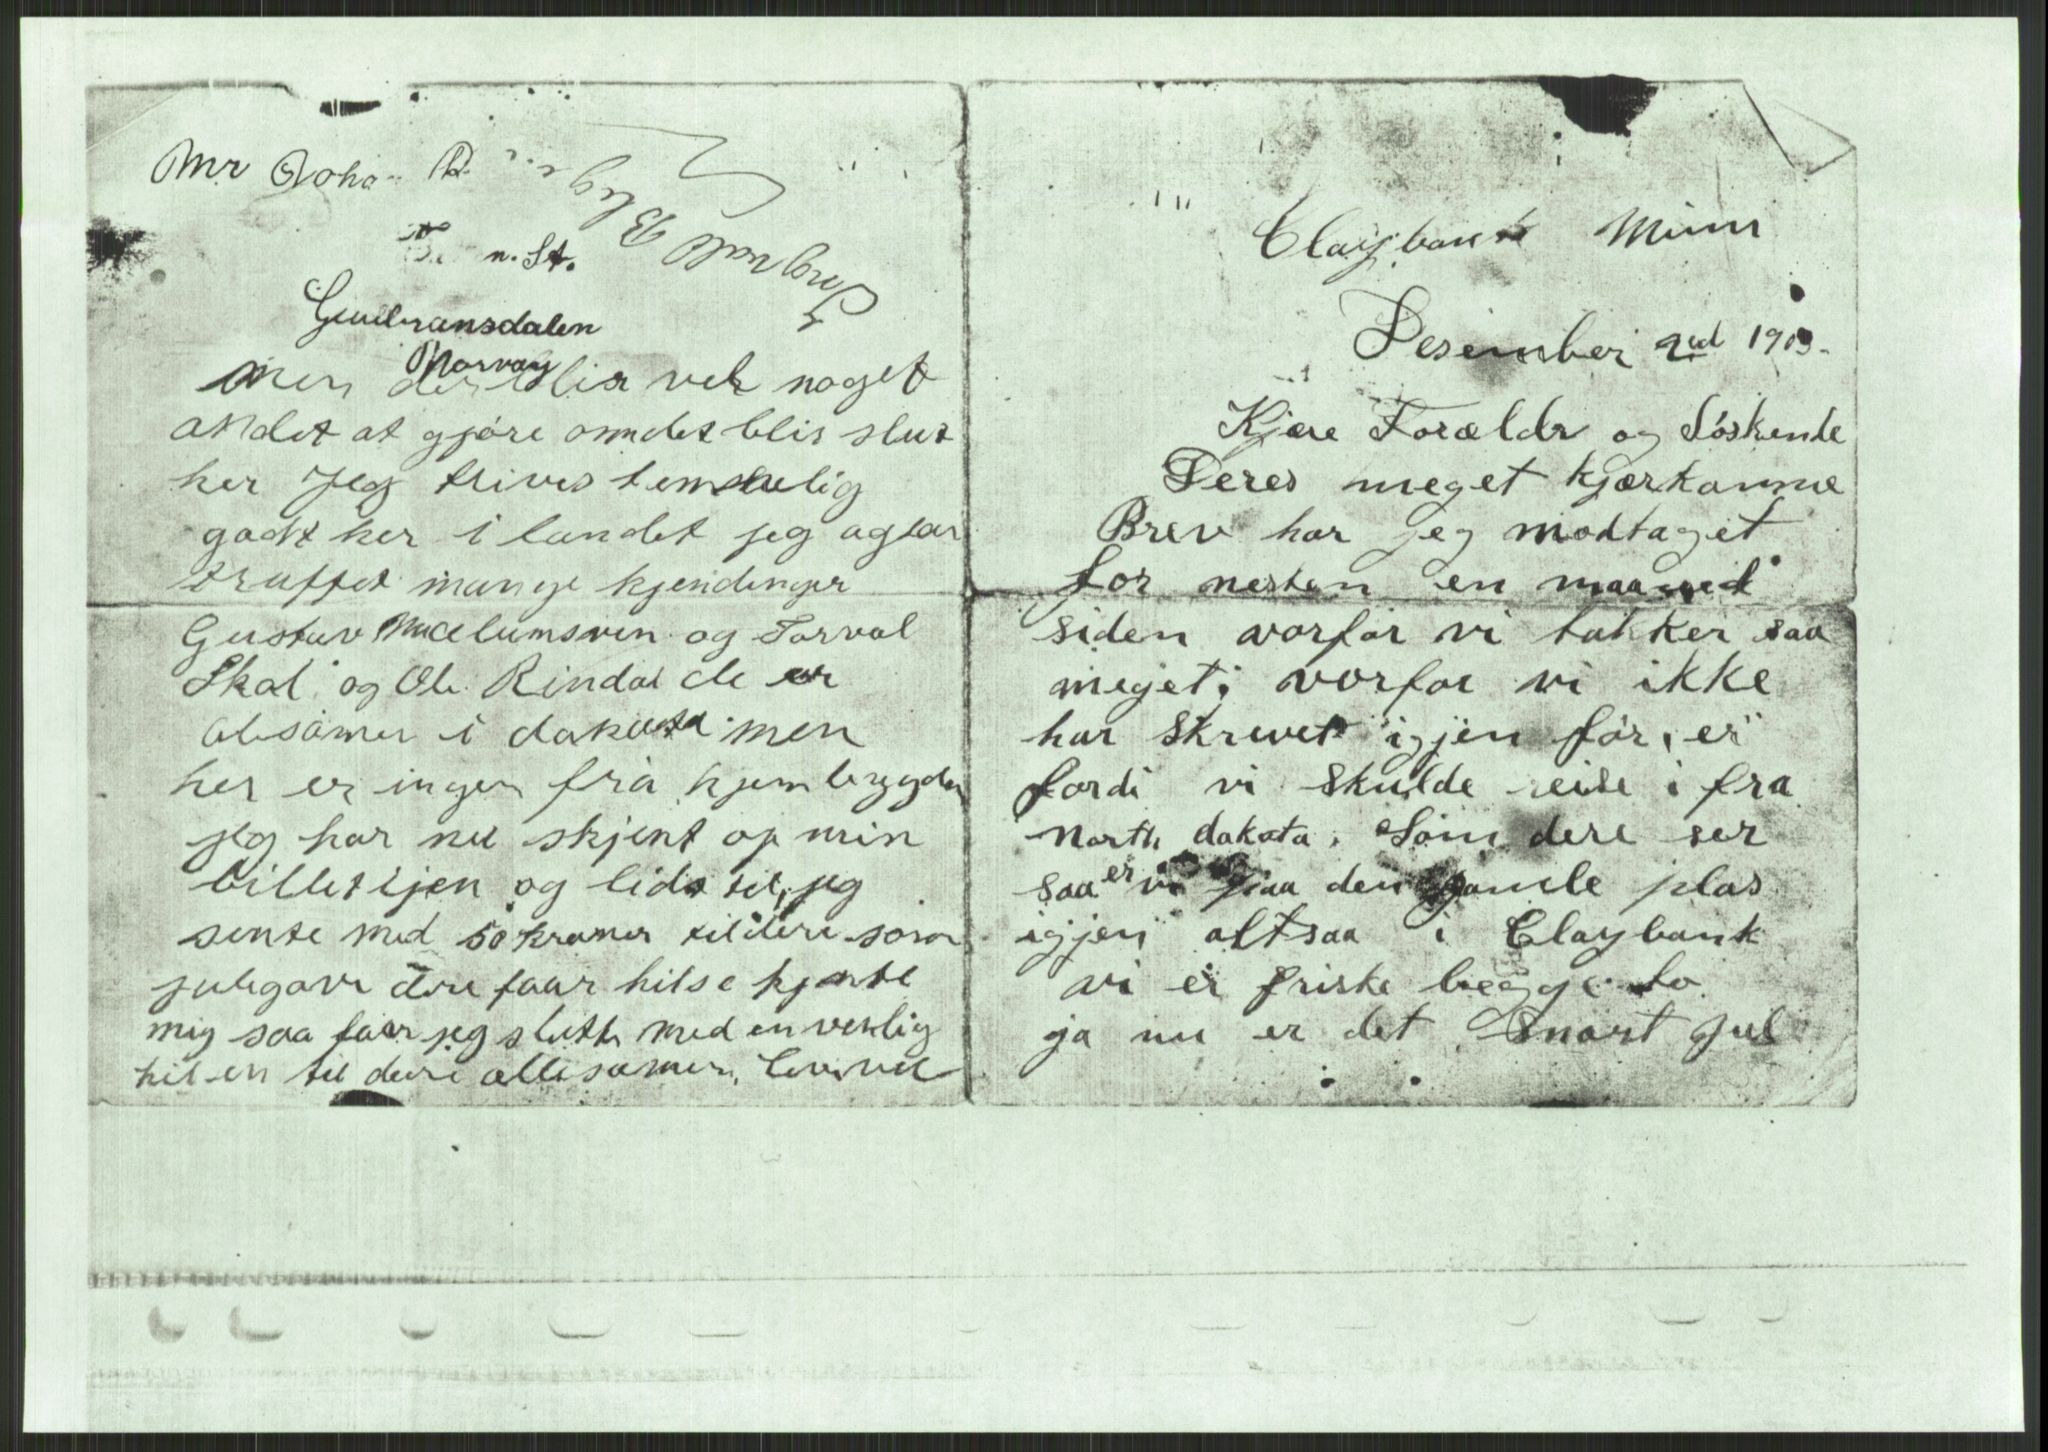 Claybank Minn
Desember 2ed 1903.
Kjære Forældr og Söskende
Deres meget kjærkomne
Brev har jeg modtaget
for nesten en maaned
siden vorfor vi takker saa
meget, vorfor vi ikke
har skrevet igjen för, er
fordi vi skulde reise i fra
North dakota. Som dere ser
saa er vi paa den gamle plas
igjen altsaa i Claybank
vi er friske begge to
ja nu er det Snart Jul
Mr Joha
n. St.
Gudbransdalen
Norvay
Ingvald B
men der blir vel noget
andet at gjöre om det blir slut
her Jeg trives temmelig
godt her i landet jeg og har
truffet mange kjendinger
Gustav og Torval
Skal og Ole Rindal de er
allesamen i dakota men
her er ingen fra hjembygden
jeg har nu skjent op min
billet ijen og lidt til, jeg
sente med 50 kroner til dere som
julegave dere faar hilse kjente
mig saa faar jeg slutte med en venlig
hilsen til dere allesamen, Levvel